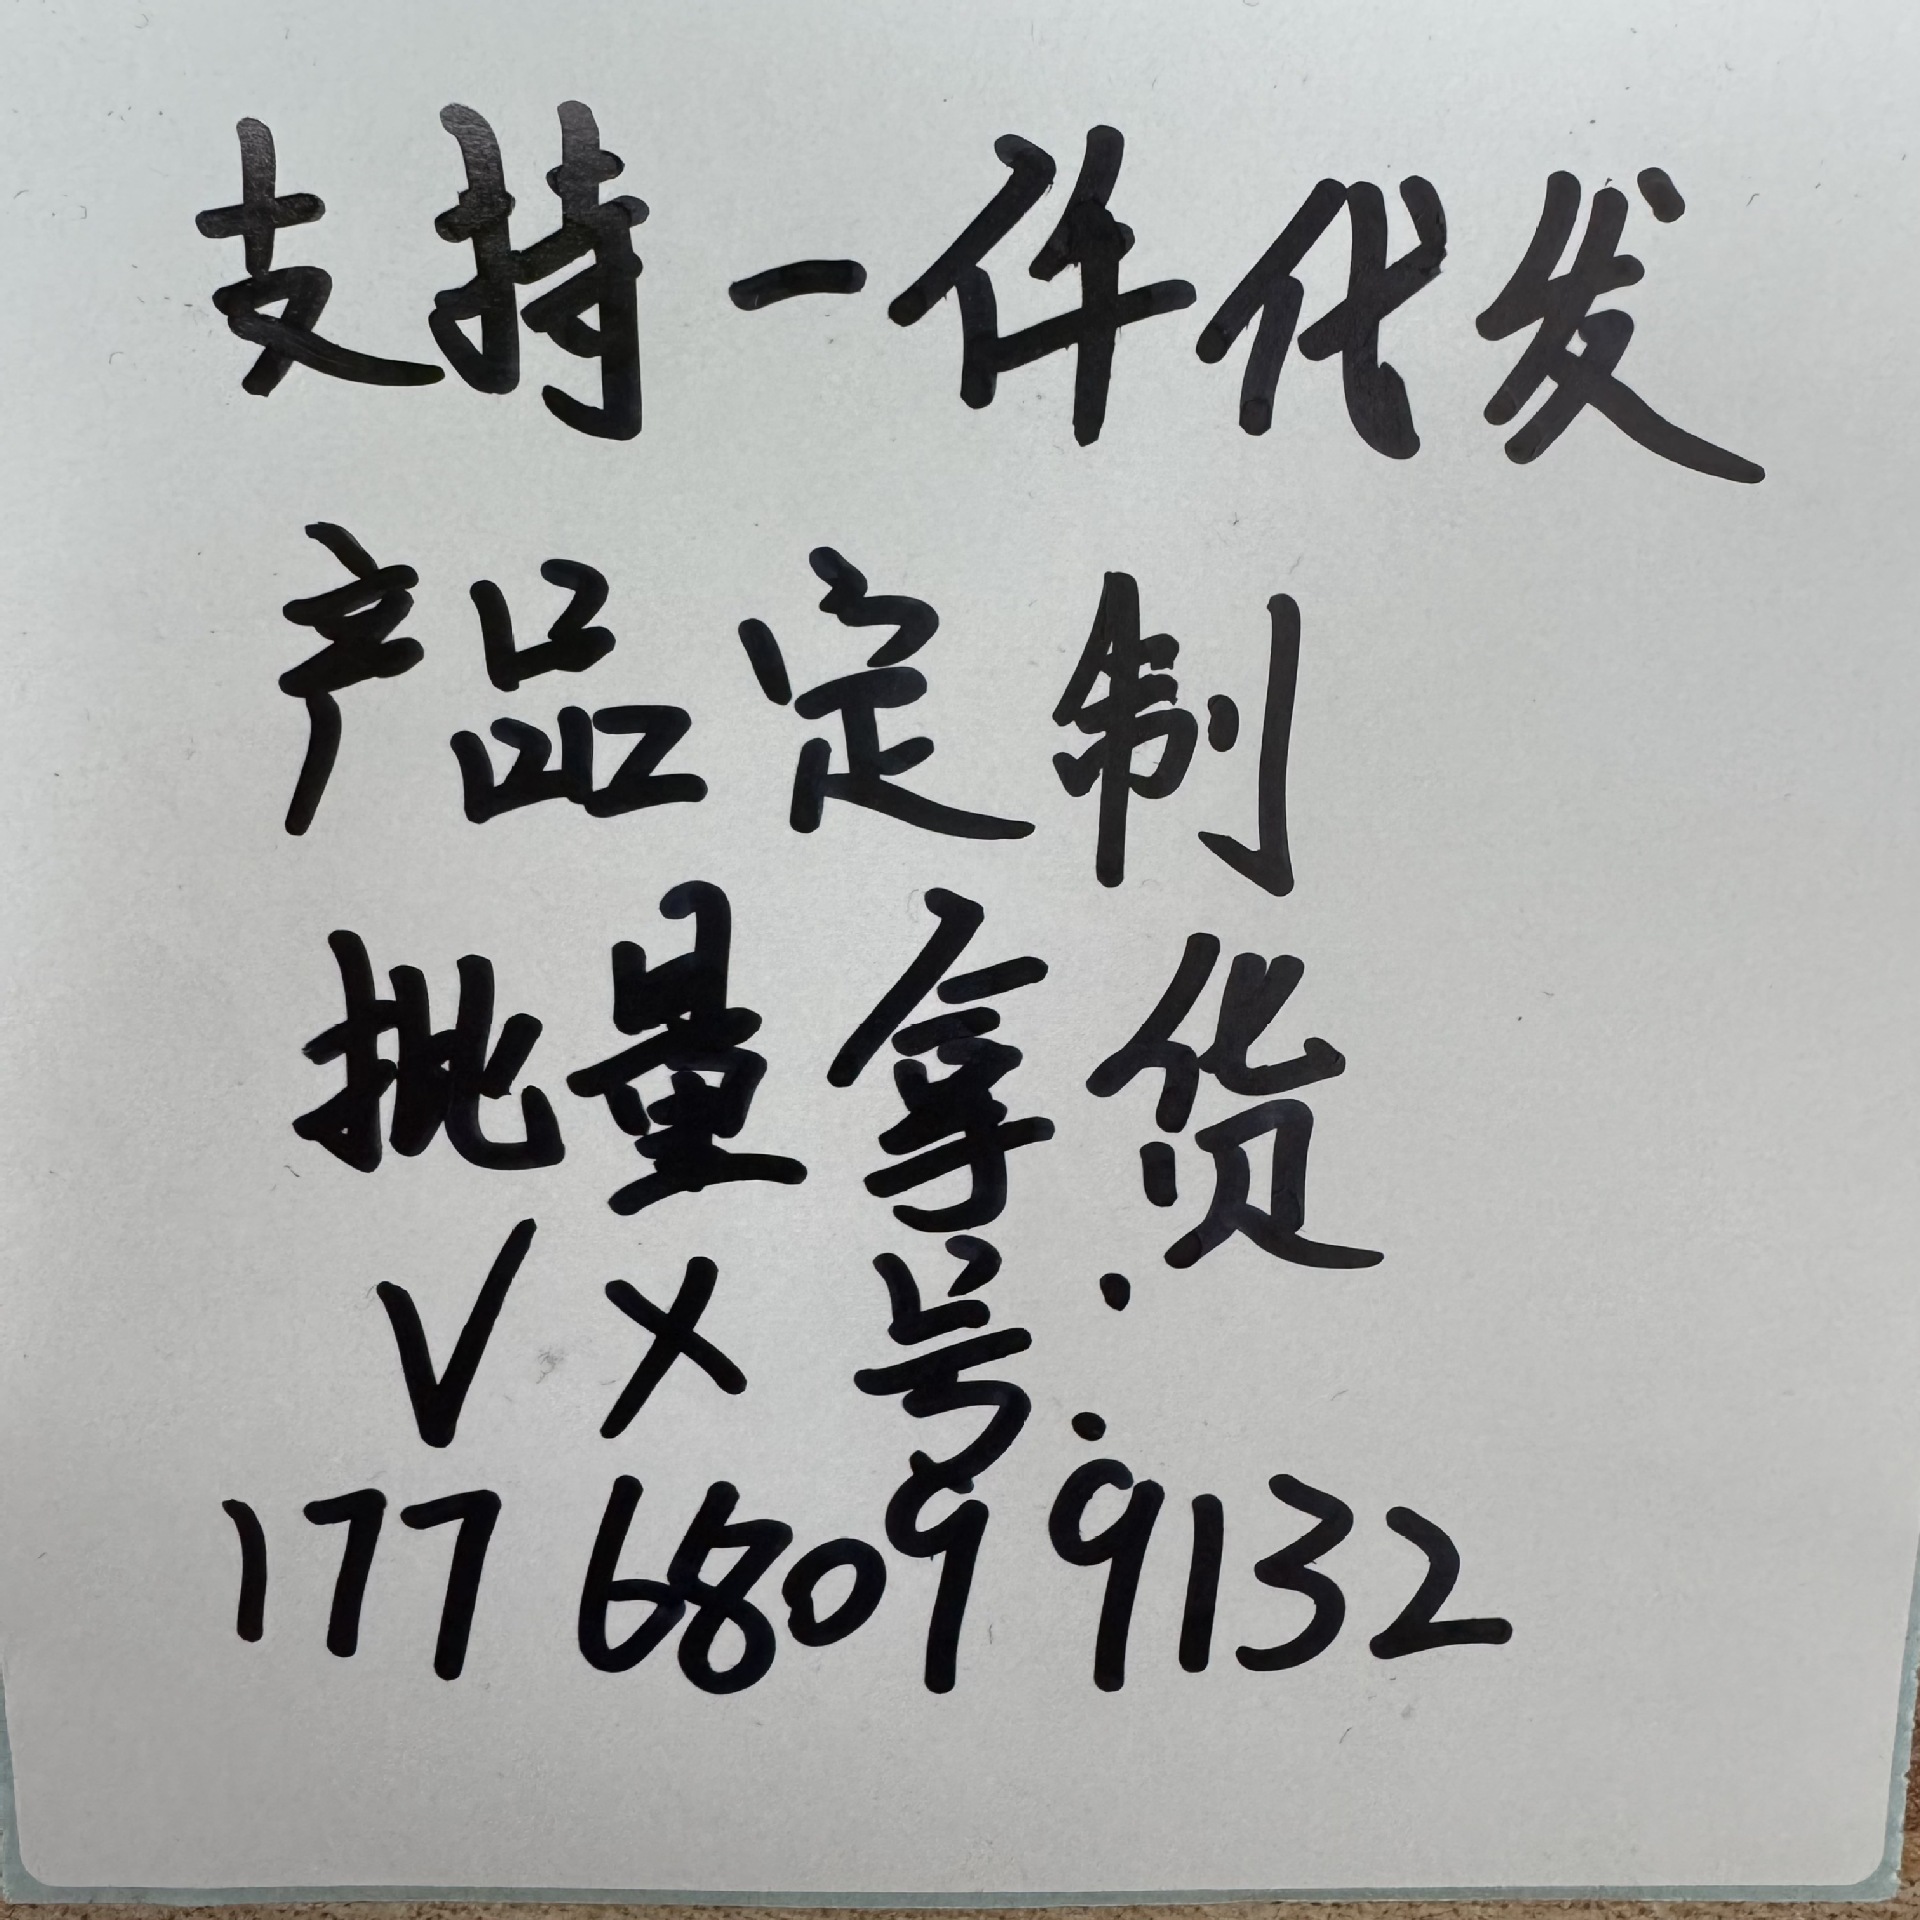 支持一件代发
产品定制
批量拿货
VX号:
17768099132